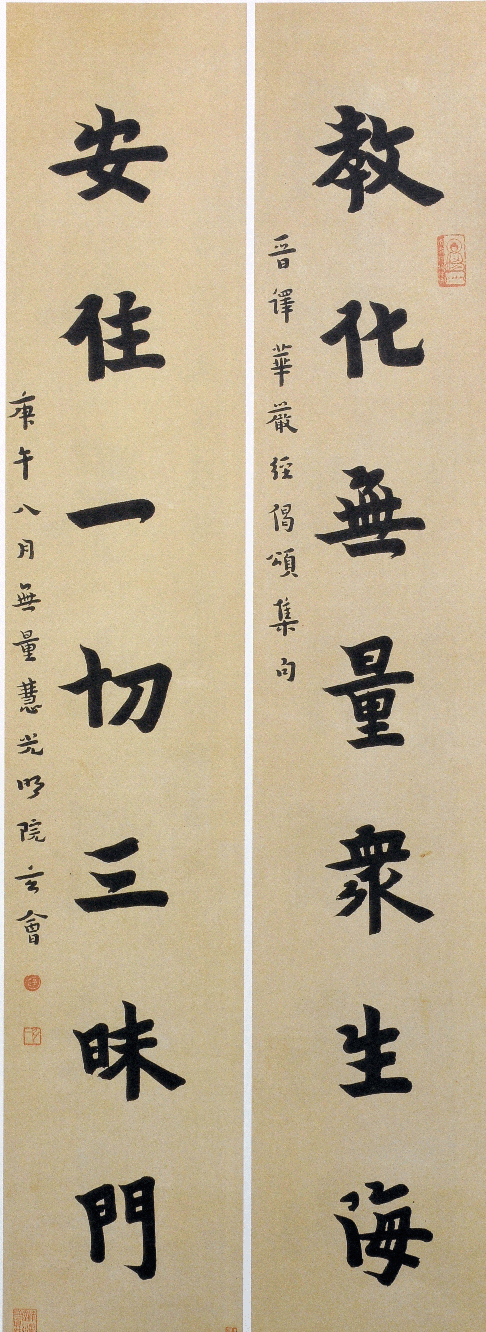 教化無量眾生海
晉譯華嚴經偈頌集句
安住一切三昧門
庚午八月無量慧光明院玄會